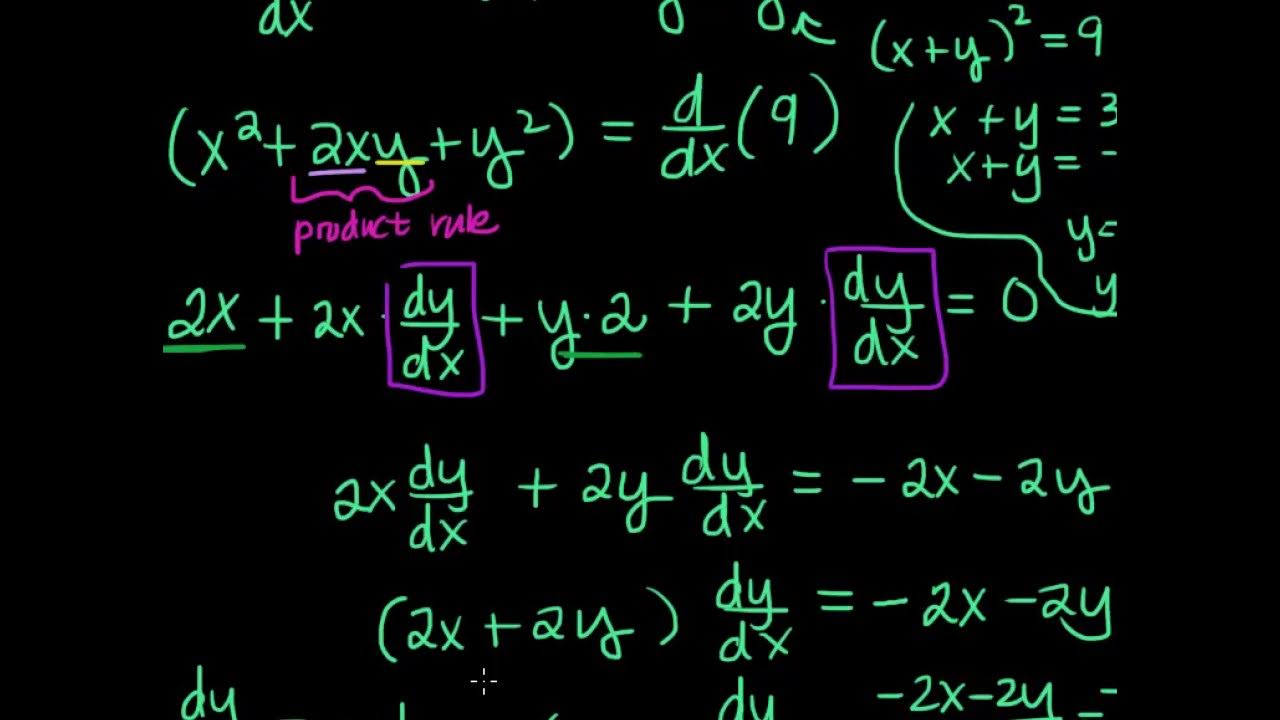 dx
(x+y)² = 9
(x² + 2xy + y²) = d/dx (9)
x + y = 3
x + y = -
product rule
y =
y
2x + 2x · dy/dx + y · 2 + 2y · dy/dx = 0
2x dy/dx + 2y dy/dx = -2x - 2y
(2x + 2y) dy/dx = -2x - 2y
dy
dy -2x-2y = -